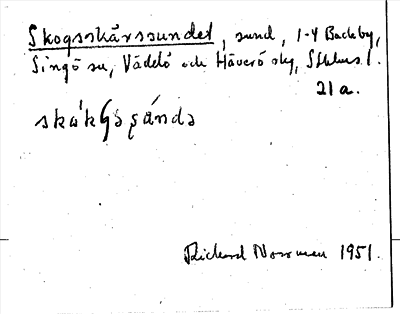 Skogsskärssundet, sund, 1-4 Backby,
Singö sn, Väddö och Häverö skg, Sthlms l.
21 a.
Rickard Norrman 1951.